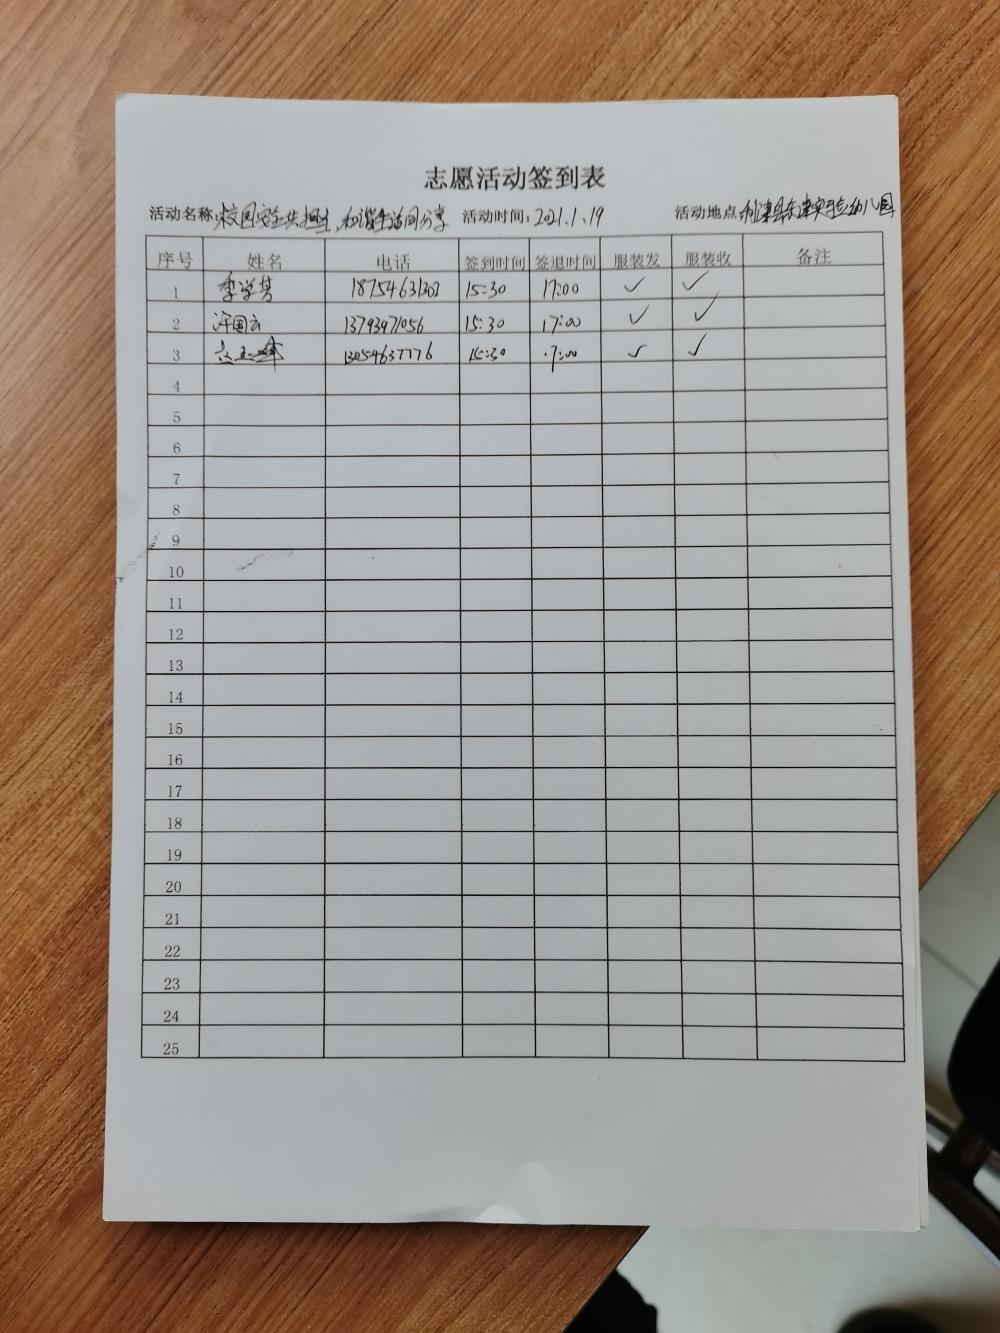 志愿活动签到表
活动名称:校园安全共担当,和谐生活同分享 活动时间:2021.1.19 活动地点:利津县东津实验幼儿园
序号 姓名 电话 签到时间 签退时间 服装发 服装收 备注
1 李学芳 18754631302 15:30 17:00 ✓ ✓
2 许国云 13793971056 15:30 17:00 ✓ ✓
3 13054637776 15:30 17:00 ✓ ✓
4
5
6
7
8
9
10
11
12
13
14
15
16
17
18
19
20
21
22
23
24
25